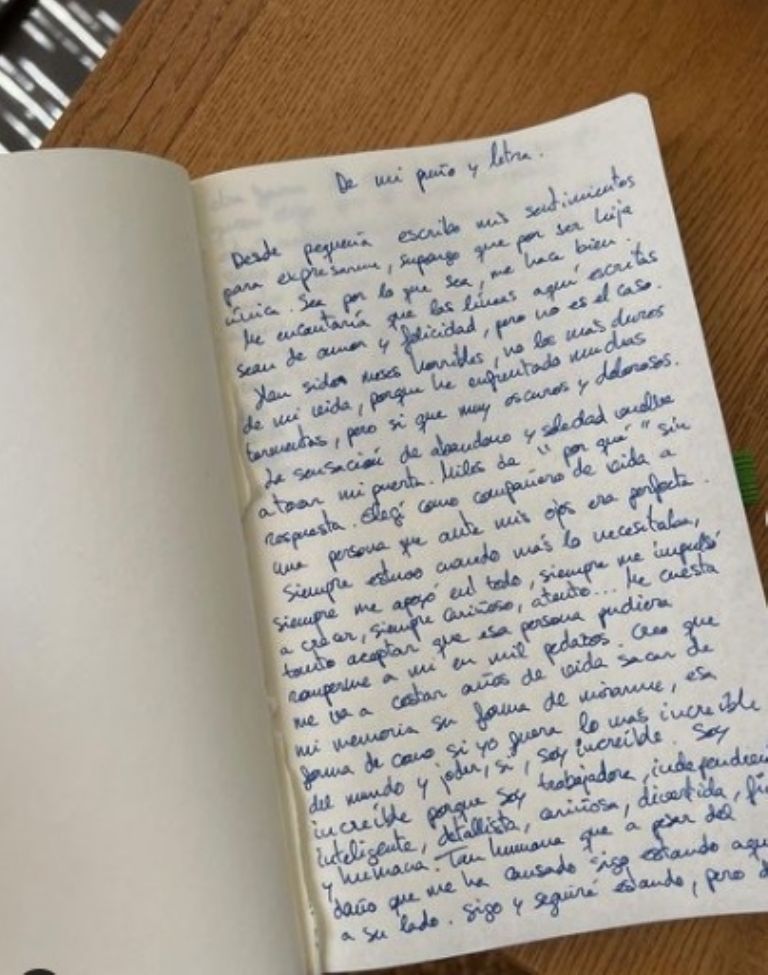 De mi puño y letra.
Desde pequeña escribo mis sentimientos
para expresarme, supongo que por ser hija
única. Sea por lo que sea, me hace bien.
Me encantaría que las líneas aquí escritas
sean de amor y felicidad, pero no es el caso.
Han sidos meses horribles, no los más duros
de mi vida, porque he enfrentado muchas
tormentas, pero si que muy oscuros y dolorosos.
La sensación de abandono y soledad vuelve
a tocar mi puerta. Miles de "por qué" sin
respuesta. Elegí como compañero de vida a
una persona que ante mis ojos era perfecta.
Siempre estuvo cuando más lo necesitaba,
siempre me apoyó en todo, siempre me impulsó
a crear, siempre cariñoso, atento... Me cuesta
tanto aceptar que esa persona pudiera
romperme a mi en mil pedazos. Creo que
me va a costar años de vida sacar de
mi memoria su forma de mirarme, esa
forma de como si yo fuera lo más increíble
del mundo y joder, si, soy increíble. Soy
increíble porque soy trabajadora, independien
inteligente, detallista, cariñosa, divertida,
y humana. Tan humana que a pesar del
daño que me ha causado sigo estando aqu
a su lado. Sigo y seguiré estando, pero